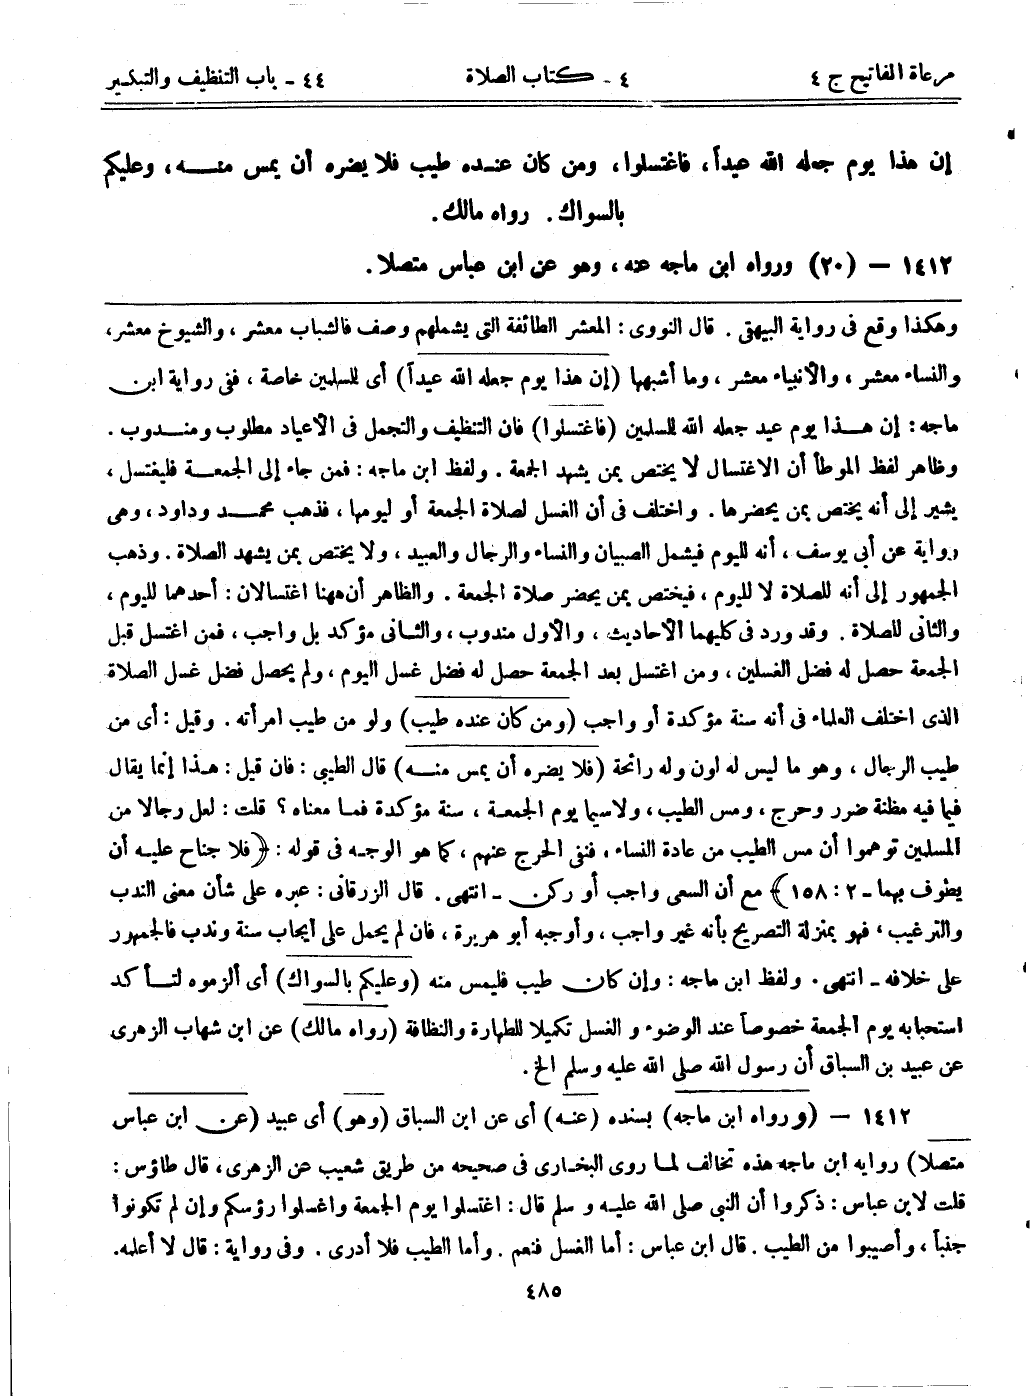 مرعاة المفاتيح ج ٤ ٤ ـ كتاب الصلاة ٤٤ ـ باب التنظيف والتبكير
إن هذا يوم جعله الله عيداً، فاغتسلوا، ومن كان عنده طيب فلا يضره أن يمس منه، وعليكم
بالسواك. رواه مالك.
١٤١٢ – (٢٠) ورواه ابن ماجه عنه، وهو عن ابن عباس متصلا.
وهكذا وقع فى رواية البيهقى. قال النووى: المعشر الطائفة التى يشملهم وصف فالشباب معشر، والشيوخ معشر،
والنساء معشر، والأنبياء معشر، وما أشبهها (إن هذا يوم جعله الله عيداً) أى للمسلمين خاصة، ففى رواية ابن
ماجه: إن هذا يوم عيد جعله الله للمسلمين (فاغتسلوا) فان التنظيف والتجمل فى الأعياد مطلوب ومندوب.
وظاهر لفظ الموطأ أن الاغتسال لا يختص بمن يشهد الجمعة. ولفظ ابن ماجه: فمن جاء إلى الجمعة فليغتسل،
يشير إلى أنه يختص بمن يحضرها. واختلف فى أن الغسل لصلاة الجمعة أو ليومها، فذهب محمد وداود، وهى
رواية عن أبى يوسف، أنه لليوم فيشمل الصبيان والنساء والرجال والعبيد، ولا يختص بمن يشهد الصلاة. وذهب
الجمهور إلى أنه للصلاة لا لليوم، فيختص بمن يحضر صلاة الجمعة. والظاهر أن ههنا اغتسالان: أحدهما لليوم،
والثانى للصلاة. وقد ورد فى كليهما الأحاديث، والأول مندوب، والثانى مؤكد بل واجب، فمن اغتسل قبل
الجمعة حصل له فضل الغسلين، ومن اغتسل بعد الجمعة حصل له فضل غسل اليوم، ولم يحصل فضل غسل الصلاة
الذى اختلف العلماء فى أنه سنة مؤكدة أو واجب (ومن كان عنده طيب) ولو من طيب امرأته. وقيل: أى من
طيب الرجال، وهو ما ليس له لون وله رائحة (فلا يضره أن يمس منه) قال الطيبى: فان قيل: هذا إنما يقال
فيما فيه مظنة ضرر وحرج، ومس الطيب، ولاسيما يوم الجمعة، سنة مؤكدة فما معناه؟ قلت: لعل رجالا من
المسلمين توهموا أن مس الطيب من عادة النساء، فنفى الحرج عنهم، كما هو الوجه فى قوله: ﴿فلا جناح عليه أن
يطوف بهما ـ ٢: ١٥٨﴾ مع أن السعى واجب أو ركن ـ انتهى. قال الزرقانى: عبره على شأن معنى الندب
والترغيب، فهو بمنزلة التصريح بأنه غير واجب، وأوجبه أبو هريرة، فان لم يحمل على أيجاب سنة وندب فالجمهور
على خلافه ـ انتهى. ولفظ ابن ماجه: وإن كان طيب فليمس منه (وعليكم بالسواك) أى ألزموه لتأكد
استحبابه يوم الجمعة خصوصاً عند الوضوء و الغسل تكميلا للطهارة والنظافة (رواه مالك) عن ابن شهاب الزهرى
عن عبيد بن السباق أن رسول الله صلى الله عليه وسلم الخ.
١٤١٢ – (ورواه ابن ماجه) بسنده (عنه) أى عن ابن السباق (وهو) أى عبيد (عن ابن عباس
متصلا) روايه ابن ماجه هذه تخالف لما روى البخارى فى صحيحه من طريق شعيب عن الزهرى، قال طاؤس:
قلت لابن عباس: ذكروا أن النبى صلى الله عليه و سلم قال: اغتسلوا يوم الجمعة واغسلوا رؤسكم وإن لم تكونوا
جنباً، وأصيبوا من الطيب. قال ابن عباس: أما الغسل فنعم. وأما الطيب فلا أدرى. وفى رواية: قال لا أعلمه.
٤٨٥